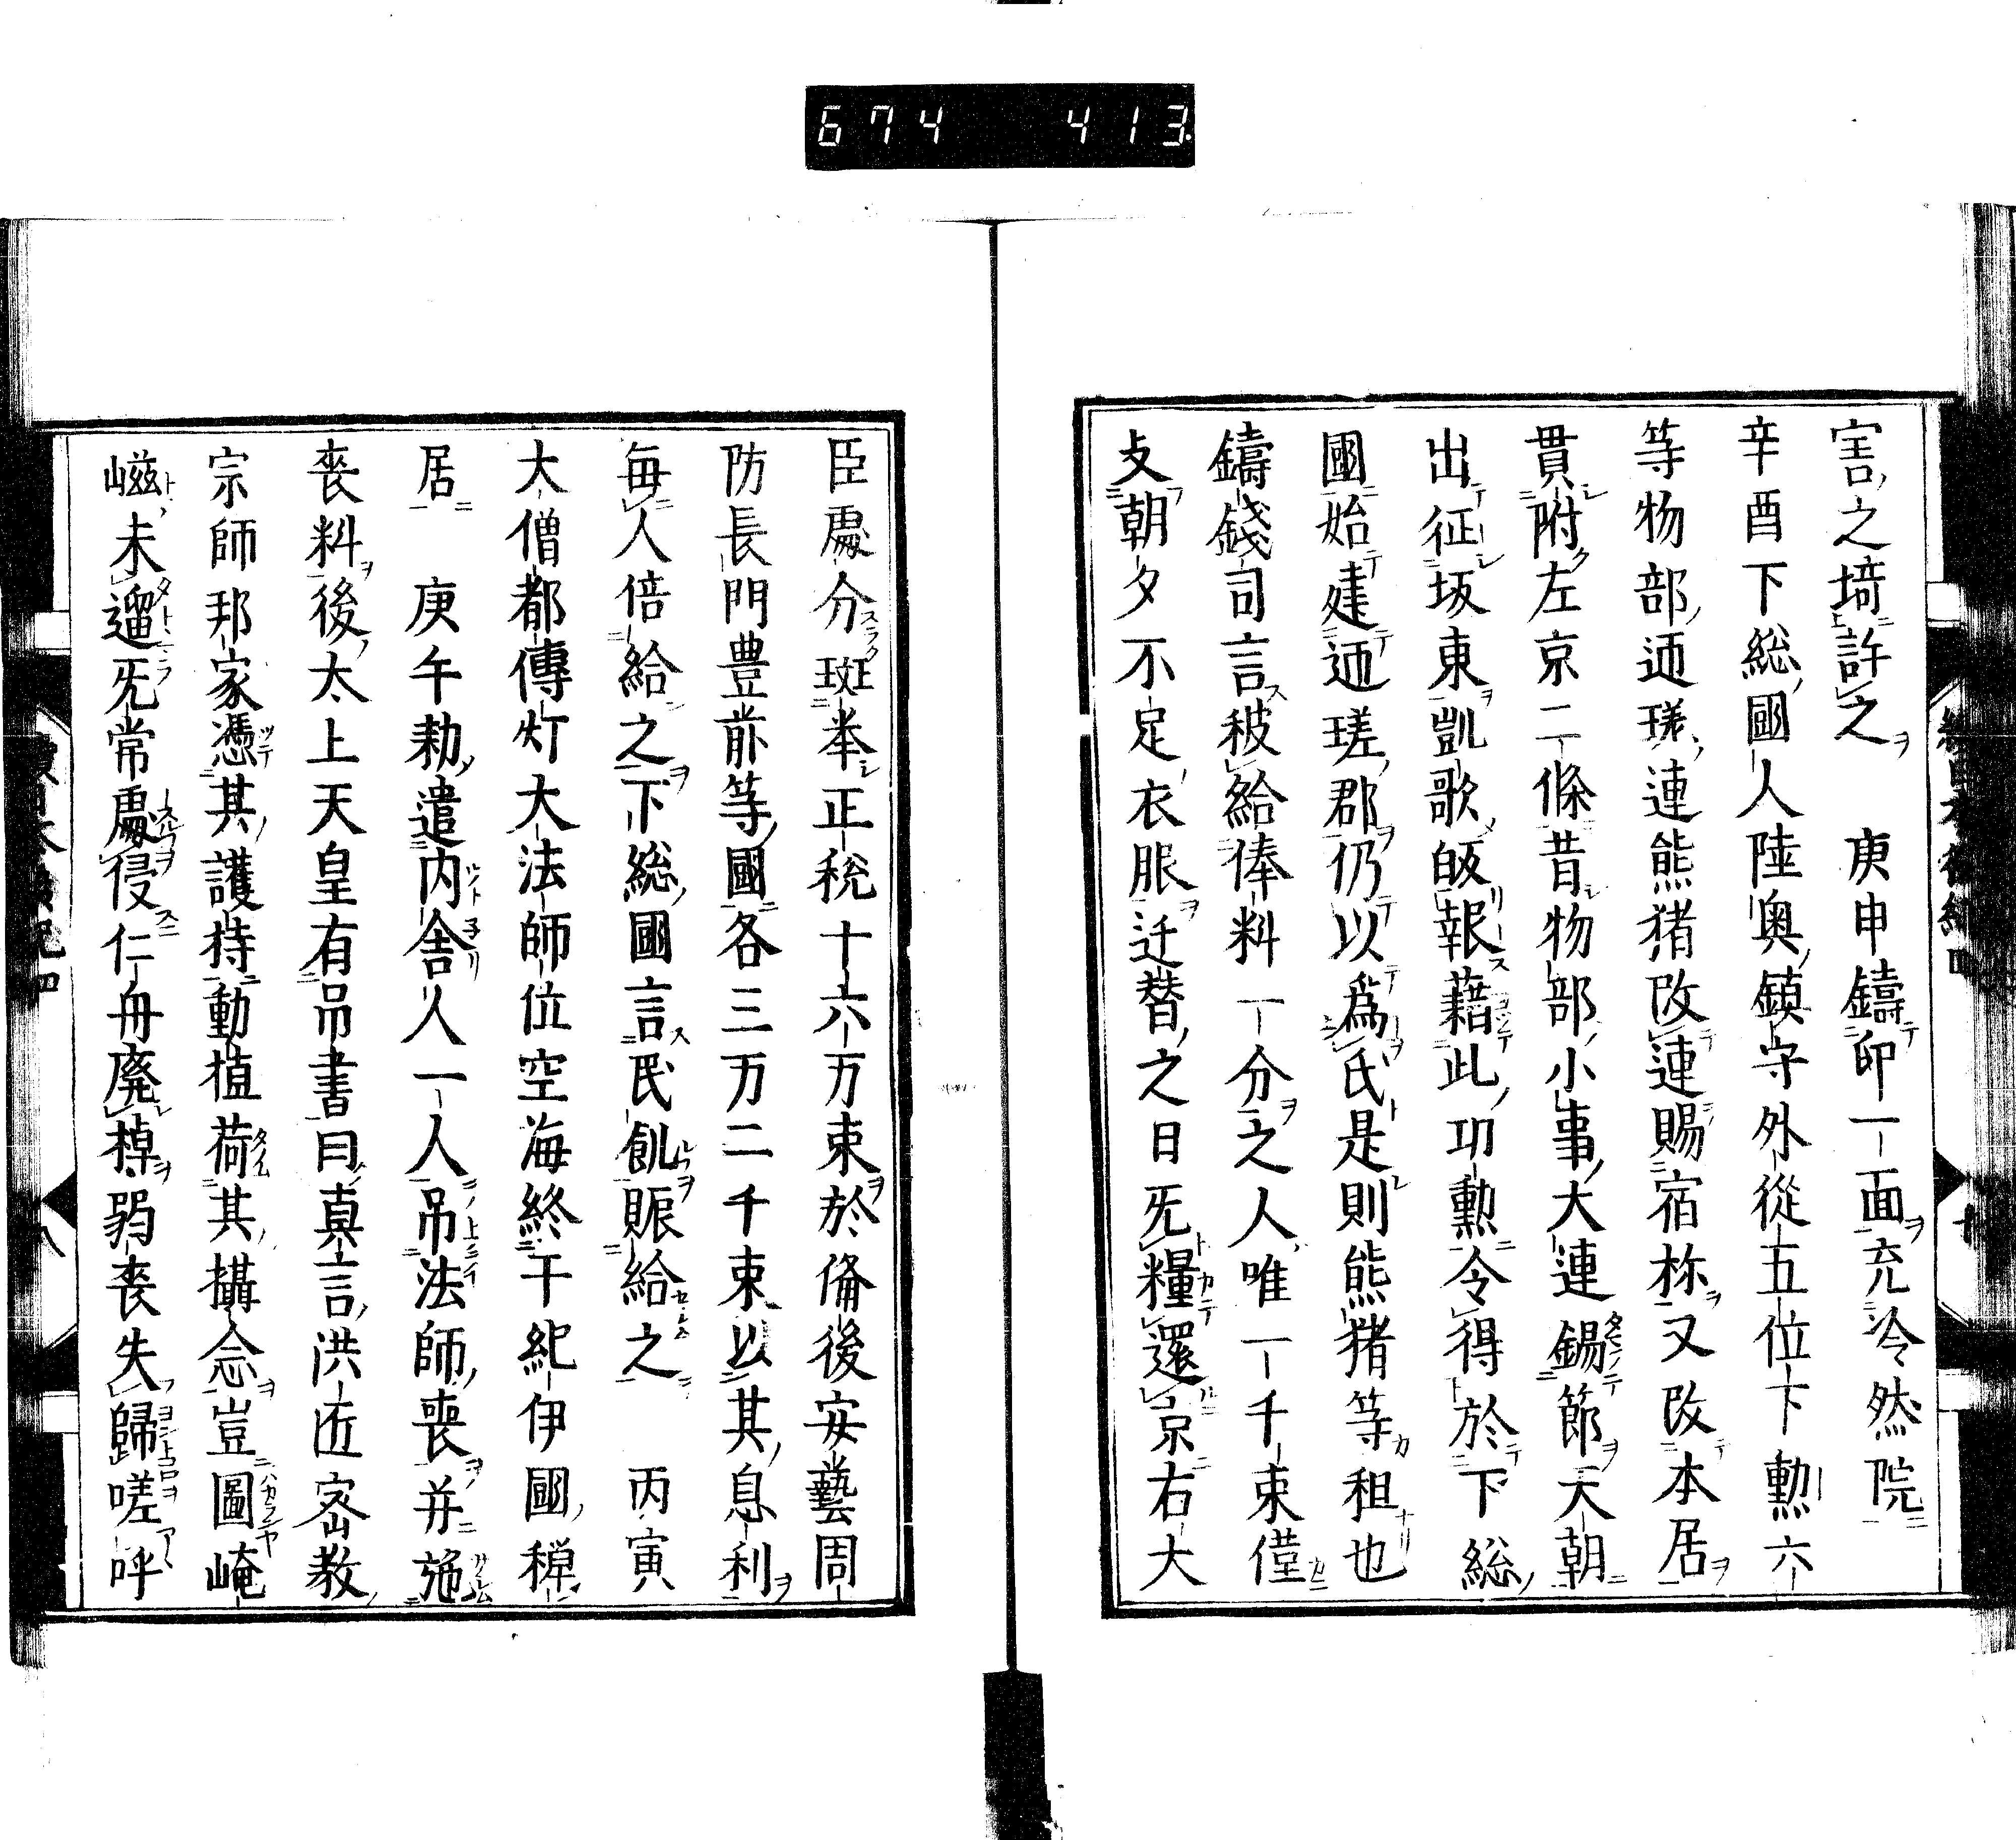 674 413
害之埼許之　庚申鑄印一面充冷然院
辛酉下総國人陸奧鎮守外從五位下勲六
等物部迊瑳連熊猪改連賜宿祢又改本居
貫附左京二條昔物部小事大連錫節天朝
出征坂東凱歌皈報藉此㓛勲令得於下総
國始建迊瑳郡仍以為氏是則熊猪等祖也
鑄錢司言秡給俸料一分之人唯一千束僅
攴朝夕不足衣服迁替之日旡糧還京右大
臣處分班挙正税十六万束於俻後安藝周
防長門豊前等國各三万二千束以其息利
毎人倍給之下総國言民飢賑給之　丙寅
大僧都傳灯大法師位空海終于紀伊國禅
居　庚午勅遣内舎人一人吊法師喪并施
喪料後太上天皇有吊書曰真言洪匠宻教
宗師邦家憑其護持動植荷其攝念豈圖崦
嵫未遛旡常處侵仁舟廃棹弱喪失歸嗟呼